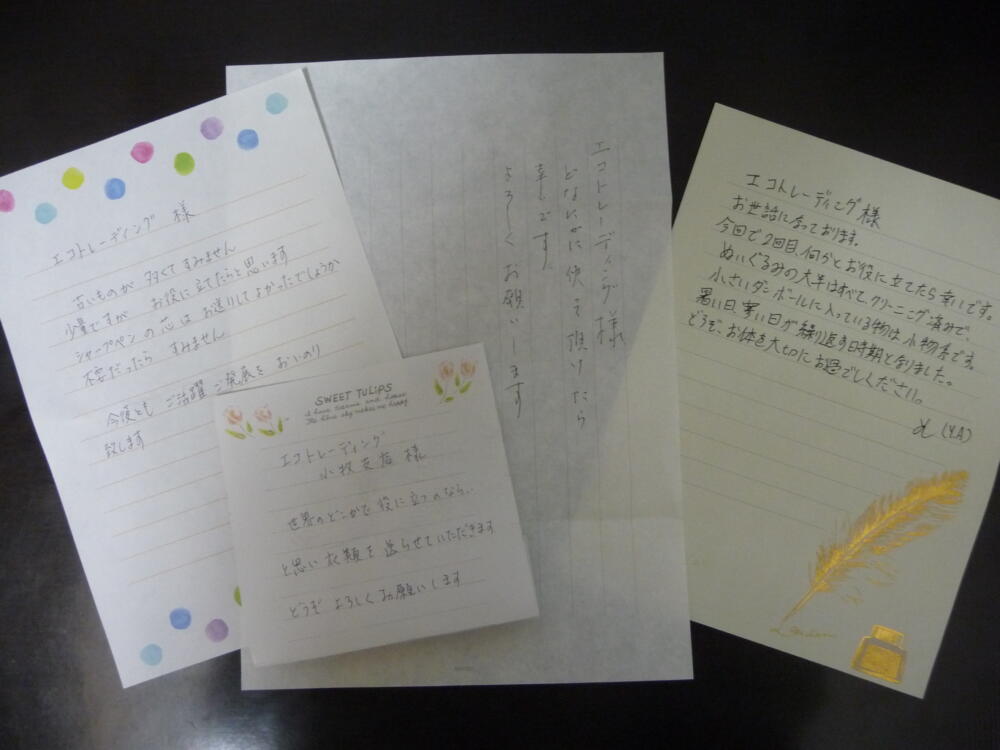 エコトレーディング 様
古いものが 多くて すみません
少量ですが お役に立てたらと思います
シャープペンの芯は お送りしてよかったでしょうか
不要だったら すみません
今後とも ご活躍 ご発展を おいのり
致します
エコトレーディング 様
どなたかに 使って 頂けたら
幸いです。
よろしく お願いします
SWEET TULIPS
エコトレーディング
小牧 様
世界のどこかで 役に立つのなら、
と思い 衣類を 送らせていただきます
どうぞ よろしくお願いします
エコトレーディング様
お世話になっております。
今回で2回目、何かとお役に立てたら幸いです。
ぬいぐるみの大半はすべてクリーニング済みで、
小さいダンボールに入っている物は小物系です。
暑い日、寒い日が繰り返す時期となりました。
どうぞ、お体を大切にお過ごしください。
(Y.A)